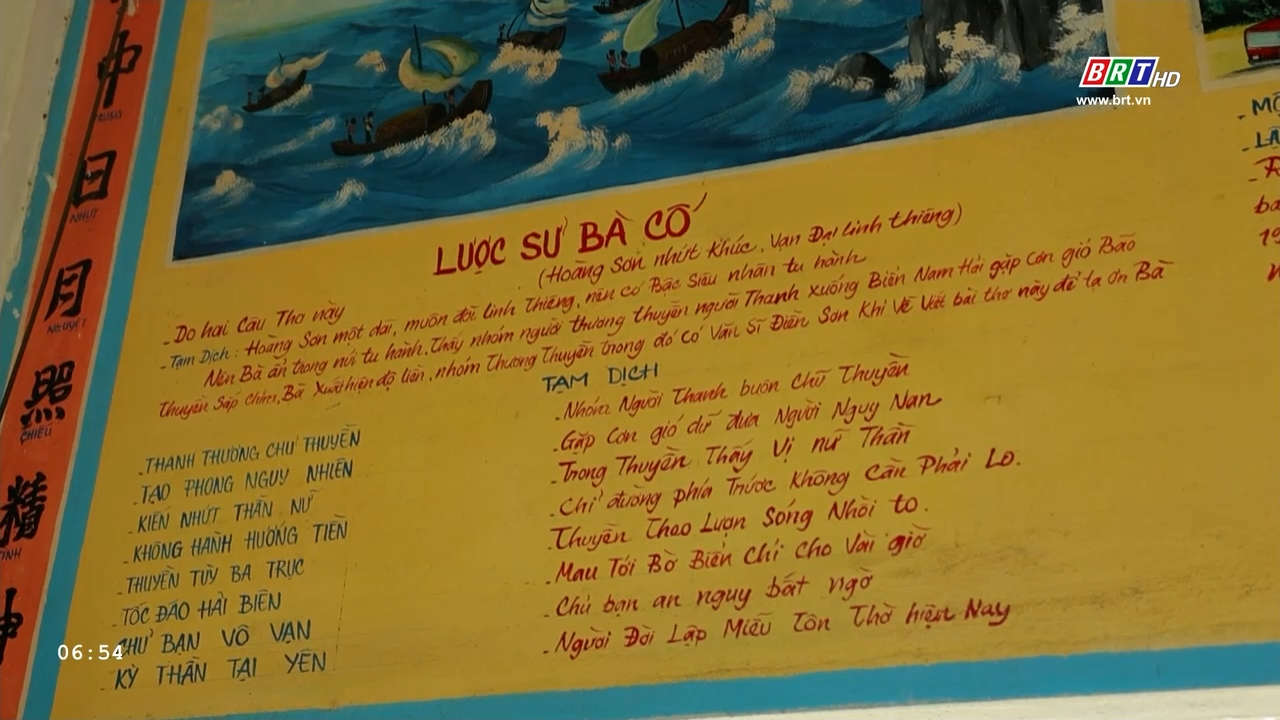 BRT HD
www.brt.vn
冲
日
NHỰT
月
NGUYỆT
照
CHIẾU
精
TINH
神
LƯỢC SỬ BÀ CỐ
(Hoàng Sơn nhứt Khúc, Vạn Đại linh thiêng)
- Do hai Câu Thơ này
- Tạm Dịch: Hoàng Sơn một dãi, muôn đời linh Thiêng, nên có Bậc Siêu nhân tu hành
Nên Bà ẩn trong núi tu hành. Thấy nhóm người thương thuyền người Thanh xuống Biển Nam Hải gặp Cơn gió Bão
Thuyền Sắp Chìm, Bà Xuất hiện độ liền, nhóm Thương Thuyền trong đó có Văn Sĩ Điền Sơn Khi Về Viết bài thơ này để tạ ơn Bà
- THANH THƯƠNG CHƯ THUYỀN
- TAO PHONG NGUY NHIÊN
- KIẾN NHỨT THẦN NỮ
- KHÔNG HÀNH HƯỚNG TIỀN
- THUYỀN TÙY BA TRỤC
- TỐC ĐÁO HẢI BIÊN
- CHƯ BẠN VÔ VẠN
- KỲ THẦN TẠI YÊN
TẠM DỊCH
- Nhóm Người Thanh buôn Chữ Thuyền
- Gặp Cơn gió dữ đưa Người Nguy Nan
- Trong Thuyền Thấy Vị nữ Thần
- Chỉ đường phía Trước Không Cần Phải Lo.
- Thuyền Theo Lượn Sóng Nhồi to.
- Mau Tới Bờ Biển Chỉ Cho Vài giờ
- Chủ bạn an nguy bất ngờ
- Người Đời Lập Miễu Tôn Thờ hiện Nay
06:54